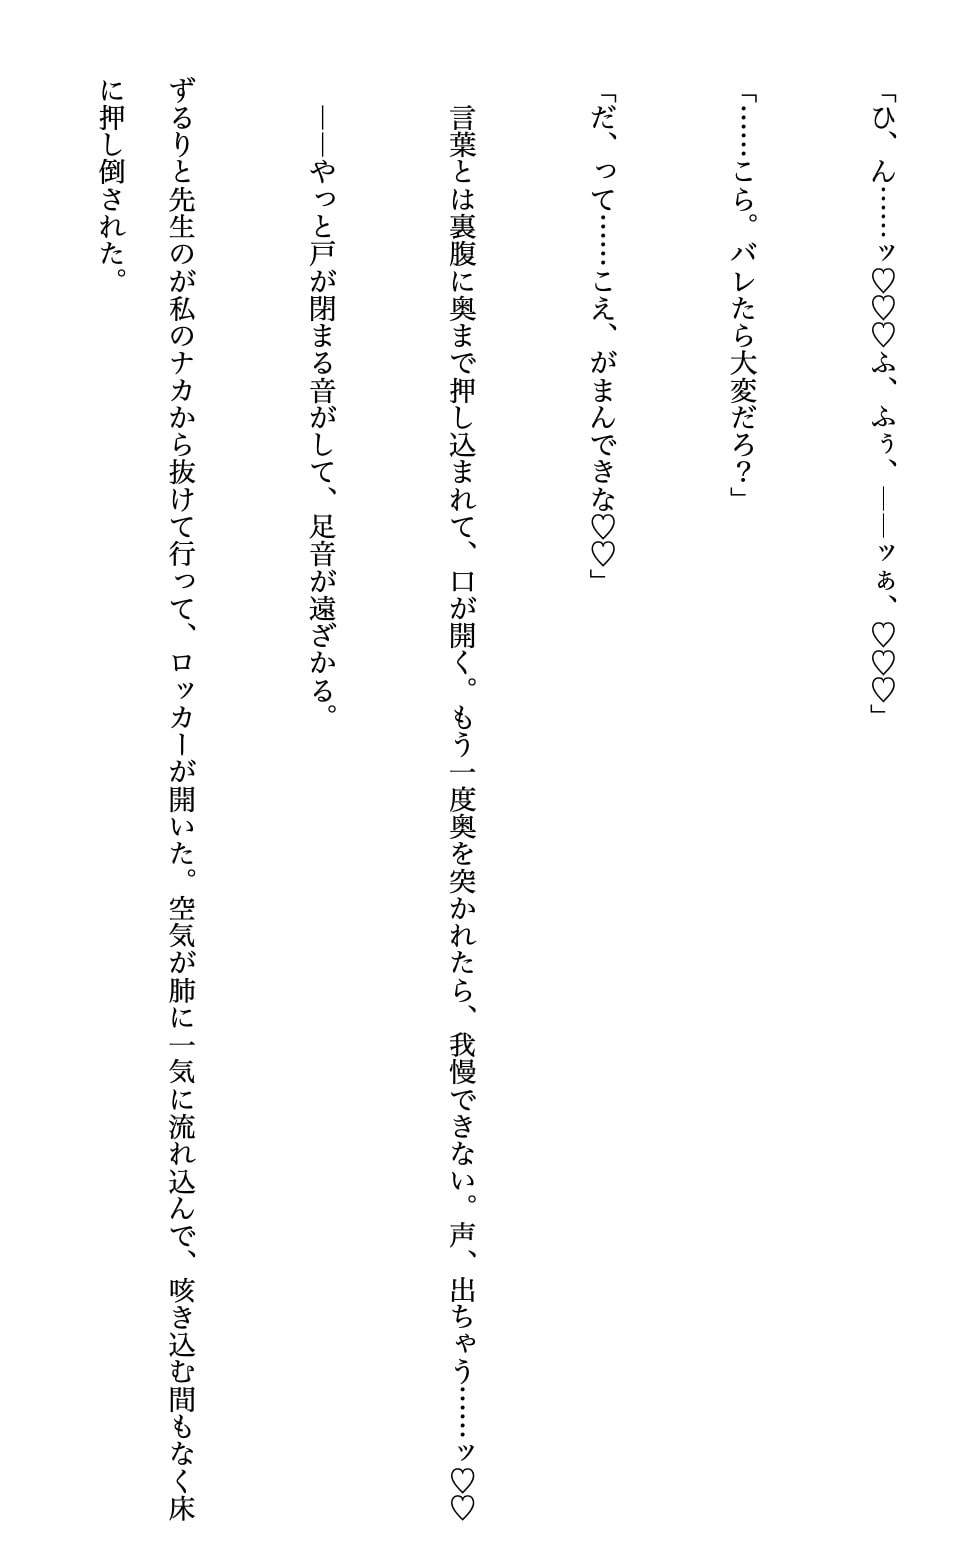 「ひ、ん……ッ♡♡♡ふ、ふぅ、――ッぁ、♡♡♡」
「……こら。バレたら大変だろ？」
「だ、って……こえ、がまんできな♡♡」
言葉とは裏腹に奥まで押し込まれて、口が開く。もう一度奥を突かれたら、我慢できない。声、出ちゃう……ッ♡♡
――やっと戸が閉まる音がして、足音が遠ざかる。
ずるりと先生のが私のナカから抜けて行って、ロッカーが開いた。空気が肺に一気に流れ込んで、咳き込む間もなく床
に押し倒された。